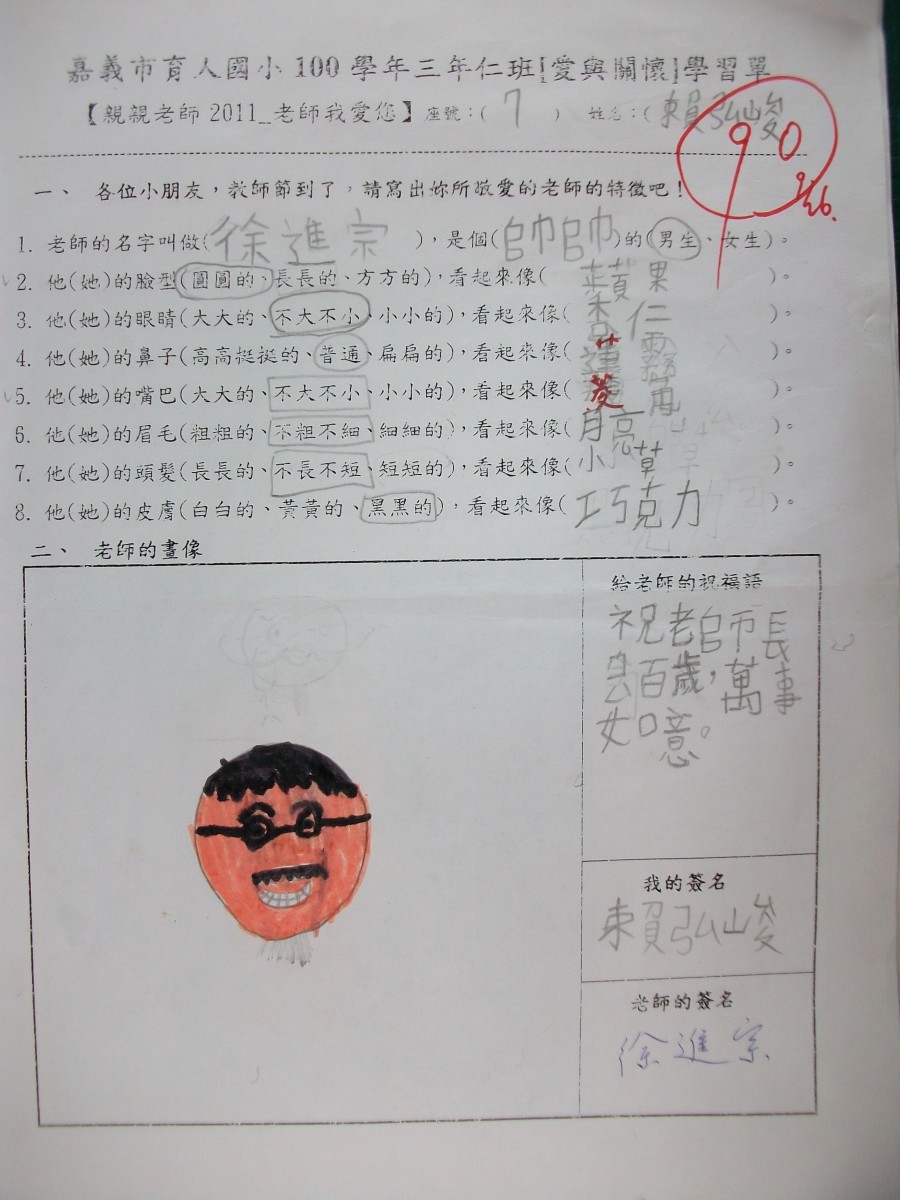 嘉義市育人國小100學年三年仁班[愛與關懷]學習單
【親親老師2011_老師我愛您】座號:( 7 ) 姓名:( 賴弘峻
90
9/26.
一、 各位小朋友，教師節到了，請寫出妳所敬愛的老師的特徵吧！
1. 老師的名字叫做(徐進宗)，是個(帥帥)的(男生、女生)。
2. 他(她)的臉型(圓圓的、長長的、方方的)，看起來像( 蘋果 )。
3. 他(她)的眼睛(大大的、不大不小、小小的)，看起來像( 杏仁 )。
4. 他(她)的鼻子(高高挺挺的、普通、扁扁的)，看起來像( 蓮霧 )。
5. 他(她)的嘴巴(大大的、不大不小、小小的)，看起來像( 菱角 )。
6. 他(她)的眉毛(粗粗的、不粗不細、細細的)，看起來像( 月亮 )。
7. 他(她)的頭髮(長長的、不長不短、短短的)，看起來像( 小草 )。
8. 他(她)的皮膚(白白的、黃黃的、黑黑的)，看起來像( 巧克力 )。
二、 老師的畫像
給老師的祝福語
祝老師長
命百歲，萬事
如意。
我的簽名
賴弘峻
老師的簽名
徐進宗